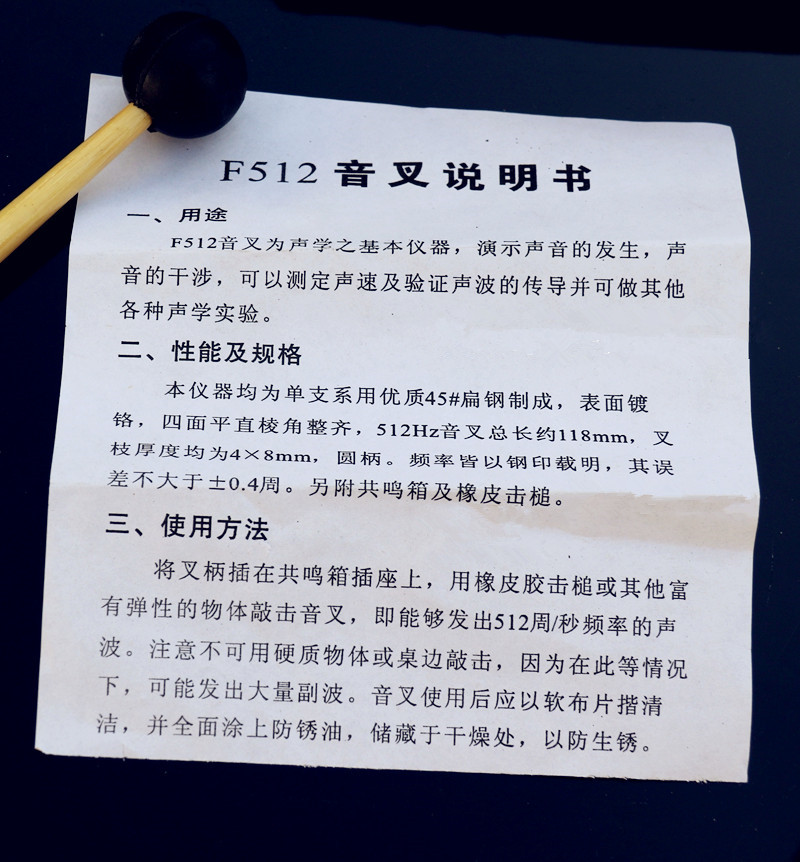 F512 音叉说明书
一、用途
F512音叉为声学之基本仪器，演示声音的发生，声
音的干涉，可以测定声速及验证声波的传导并可做其他
各种声学实验。
二、性能及规格
本仪器均为单支系用优质45#扁钢制成，表面镀
铬，四面平直棱角整齐，512Hz音叉总长约118mm，叉
枝厚度均为4×8mm，圆柄。频率皆以钢印载明，其误
差不大于±0.4周。另附共鸣箱及橡皮击槌。
三、使用方法
将叉柄插在共鸣箱插座上，用橡皮胶击槌或其他富
有弹性的物体敲击音叉，即能够发出512周/秒频率的声
波。注意不可用硬质物体或桌边敲击，因为在此等情况
下，可能发出大量副波。音叉使用后应以软布片揩清
洁，并全面涂上防锈油，储藏于干燥处，以防生锈。